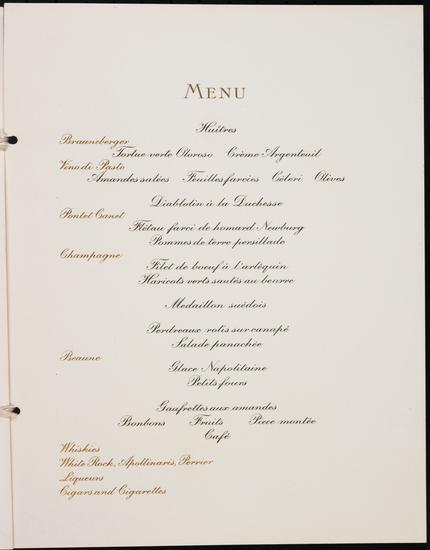 MENU
Huîtres
Brauneberger
Tortue verte Oloroso Crème Argenteuil
Vino di Pasto
Amandes salées Feuilles farcies Céleri Olives
Diablotin à la Duchesse
Pontet Canet
Flétau farci de homard Newburg
Pommes de terre persillade
Champagne
Filet de boeuf à l'arlequin
Haricots verts sautés au beurre
Medaillon suédois
Perdreaux rotis sur canapé
Salade panachée
Beaune
Glace Napolitaine
Petits fours
Gaufrettes aux amandes
Bonbons Fruits Piece montée
Café
Whiskies
White Rock, Apollinaris, Perrier
Liqueurs
Cigars and Cigarettes